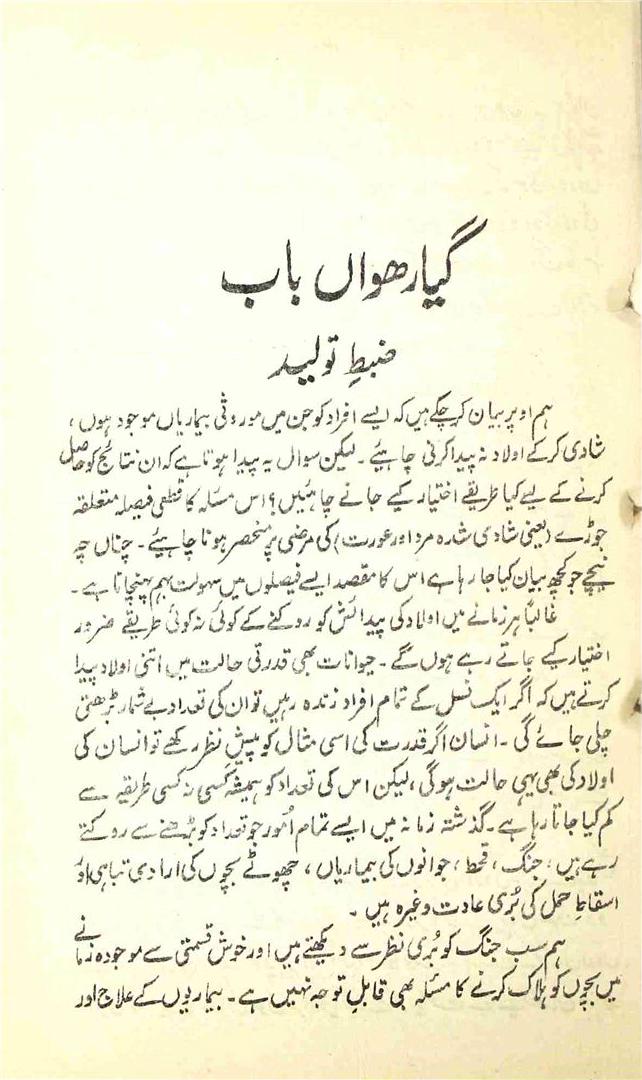 گیارھواں باب
ضبطِ تولید
ہم اوپر بیان کر چکے ہیں کہ ایسے افراد کو جن میں موروثی بیماریاں موجود ہوں،
شادی کرکے اولاد نہ پیدا کرنی چاہیے۔ لیکن سوال یہ پیدا ہوتا ہے کہ ان نتائج کو حاصل
کرنے کے لیے کیا طریقے اختیار کیے جانے چاہئیں؟ اس مسئلہ کا قطعی فیصلہ متعلقہ
جوڑے (یعنی شادی شدہ مرد اور عورت) کی مرضی پر منحصر ہونا چاہیے۔ چناں چہ
نیچے جو کچھ بیان کیا جا رہا ہے اس کا مقصد ایسے فیصلوں میں سہولت بہم پہنچانا ہے۔
غالباً ہر زمانے میں اولاد کی پیدائش کو روکنے کے کوئی نہ کوئی طریقے ضرور
اختیار کیے جاتے رہے ہوں گے۔ حیوانات بھی قدرتی حالت میں اتنی اولاد پیدا
کرتے ہیں کہ اگر ایک نسل کے تمام افراد زندہ رہیں تو ان کی تعداد بے شمار بڑھتی
چلی جائے گی۔ انسان اگر قدرت کی اسی مثال کو پیشِ نظر رکھے تو انسان کی
اولاد کی بھی یہی حالت ہوگی، لیکن اس کی تعداد کو ہمیشہ کسی نہ کسی طریقہ سے
کم کیا جاتا رہا ہے۔ گذشتہ زمانہ میں ایسے تمام اُمور جو تعداد کو بڑھنے سے روکتے
رہے ہیں، جنگ، قحط، جوانوں کی بیماریاں، چھوٹے بچوں کی ارادی تباہی اور
اسقاطِ حمل کی بُری عادت وغیرہ ہیں۔
ہم سب جنگ کو بُری نظر سے دیکھتے ہیں اور خوش قسمتی سے موجودہ زمانے
میں بچوں کو ہلاک کرنے کا مسئلہ بھی قابلِ توجہ نہیں ہے۔ بیماریوں کے علاج اور